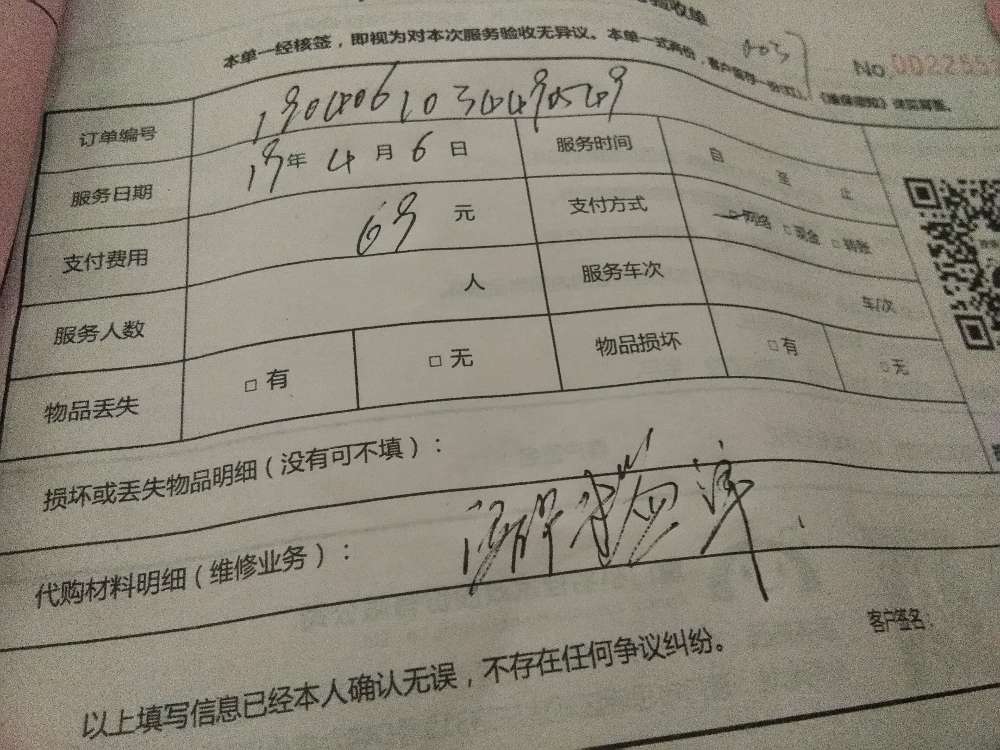 验收单
本单一经核签，即视为对本次服务验收无异议。本单一式两份，客户留存一份
No 002255
订单编号
服务日期 19年 4月 6日 服务时间 自 至 止
支付费用 69 元 支付方式 □网络 □现金 □转账
服务人数 人 服务车次 车/次
物品丢失 □ 有 □ 无 物品损坏 □有 □无
损坏或丢失物品明细（没有可不填）：
代购材料明细（维修业务）：
客户签名：
以上填写信息已经本人确认无误，不存在任何争议纠纷。